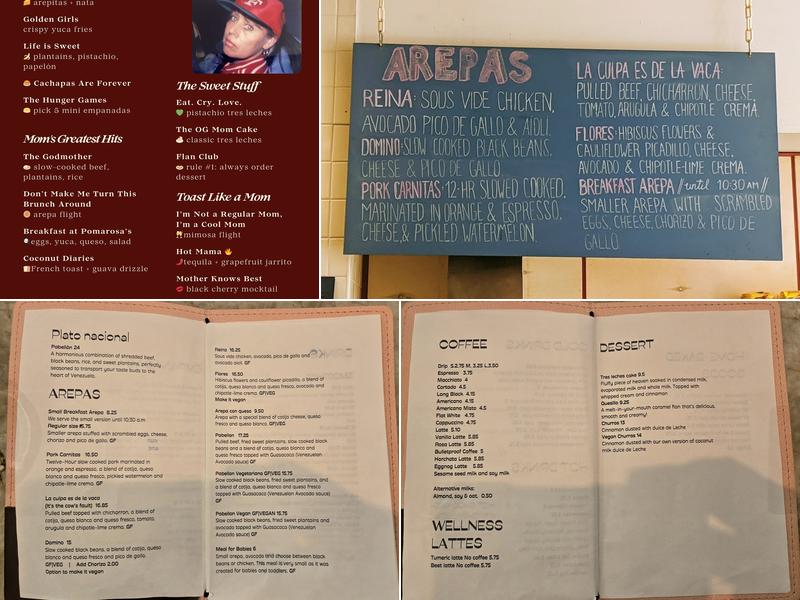 arepitas + nata
Golden Girls
crispy yuca fries
Life is Sweet
plantains, pistachio,
papelón
Cachapas Are Forever
The Hunger Games
pick 5 mini empanadas
Mom's Greatest Hits
The Godmother
slow-cooked beef,
plantains, rice
Don't Make Me Turn This
Brunch Around
arepa flight
Breakfast at Pomarosa's
eggs, yuca, queso, salad
Coconut Diaries
French toast + guava drizzle
The Sweet Stuff
Eat. Cry. Love.
pistachio tres leches
The OG Mom Cake
classic tres leches
Flan Club
rule #1: always order
dessert
Toast Like a Mom
I'm Not a Regular Mom,
I'm a Cool Mom
mimosa flight
Hot Mama
tequila + grapefruit jarrito
Mother Knows Best
black cherry mocktail
AREPAS
REINA: SOUS VIDE CHICKEN,
AVOCADO PICO DE GALLO & AIOLI.
DOMINO: SLOW COOKED BLACK BEANS,
CHEESE & PICO DE GALLO.
PORK CARNITAS: 12-HR SLOWED COOKED,
MARINATED IN ORANGE & ESPRESSO,
CHEESE, & PICKLED WATERMELON.
LA CULPA ES DE LA VACA:
PULLED BEEF, CHICHARRON, CHEESE,
TOMATO, ARUGULA & CHIPOTLE CREMA.
FLORES: HIBISCUS FLOWERS &
CAULIFLOWER PICADILLO, CHEESE,
AVOCADO & CHIPOTLE-LIME CREMA.
BREAKFAST AREPA //until 10:30 AM//
SMALLER AREPA WITH SCRAMBLED
EGGS, CHEESE, CHORIZO & PICO DE
GALLO.
Plato nacional
Pabellón 24
A harmonious combination of shredded beef,
black beans, rice, and sweet plantains, perfectly
seasoned to transport your taste buds to the
heart of Venezuela.
AREPAS
Small Breakfast Arepa 8.25
We serve the small version Until 10:30 a.m
Regular size 15.75
Smaller arepa stuffed with scrambled eggs, cheese,
chorizo and pico de gallo. GF
Pork Carnitas 16.50
Twelve-Hour slow cooked pork marinated in
orange and espresso, a blend of cotija, queso
blanco and queso fresco, pickled watermelon and
chipotle-lime crema. GF
La culpa es de la vaca
(It's the cow's fault) 16.85
Pulled beef topped with chicharron, a blend of
cotija, queso blanco and queso fresco, tomato,
arugula and chipotle-lime crema. GF
Domino 15
Slow cooked black beans, a blend of cotija, queso
blanco and queso fresco and pico de gallo.
GF|VG | Add Chorizo 2.00
Option to make it vegan
Reina 16.25
Sous vide chicken, avocado, pico de gallo and
avocado aioli. GF
Flores 16.50
Hibiscus flowers and cauliflower picadillo, a blend of
cotija, queso blanco and queso fresco, avocado and
chipotle-lime crema. GF|VEG
Make it vegan
Arepa con queso 9.50
Arepa with a special blend of cotija cheese, queso
fresco and queso blanco. GF|VEG
Pabellon 17.25
Pulled beef, fried sweet plantains, slow cooked black
beans and a blend of cotija, queso blanco and
queso fresco, topped with Guasacaca (Venezuelan
Avocado sauce) GF
Pabellon Vegetariano GF|VEG 15.75
Slow cooked black beans, fried sweet plantains, and
a blend of cotija, queso blanco and queso fresco,
topped with Guasacaca (Venezuelan Avocado sauce)
GF
Pabellon Vegan GF|VEGAN 15.75
Slow cooked black beans, fried sweet plantains and
avocado topped with Guasacaca (Venezuelan
Avocado sauce) GF
Meal for Babies 6
Small arepa, avocado and choose between black
beans or chicken. This meal is very small as it was
created for babies and toddlers. GF
COFFEE
Drip S.2.75 M, 3.25 L.3.50
Espresso 3.75
Macchiato 4
Cortado 4.5
Long Black 4.15
Americano 4.15
Americano Misto 4.5
Flat White 4.75
Cappuccino 4.75
Latte 5.10
Vanilla Latte 5.85
Rosa Latte 5.85
Bulletproof Coffee 5
Horchata Latte 5.85
Eggnog Latte 5.85
Sesame seed milk and soy milk
Alternative milks:
Almond, soy & oat. 0.50
WELLNESS
LATTES
Tumeric latte No coffee 5.75
Beet latte No coffee 5.75
DESSERT
Tres leches cake 9.5
Fluffy piece of heaven soaked in condensed milk,
evaporated milk and whole milk. Topped with
whipped cream and cinnamon
Quesillo 9.25
A melt-in-your-mouth caramel flan that's delicious,
smooth and creamy!
Churros 13
Cinnamon dusted with dulce de Leche
Vegan Churros 14
Cinnamon dusted with our own version of coconut
milk dulce de Leche